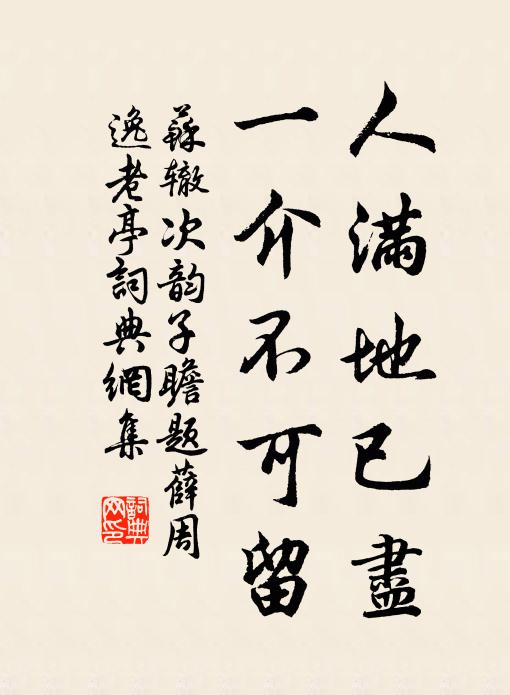 人满地已盡
一介不可留
蘇辙次韵子瞻题薛周
逸老亭詞典網集
詞典
网印